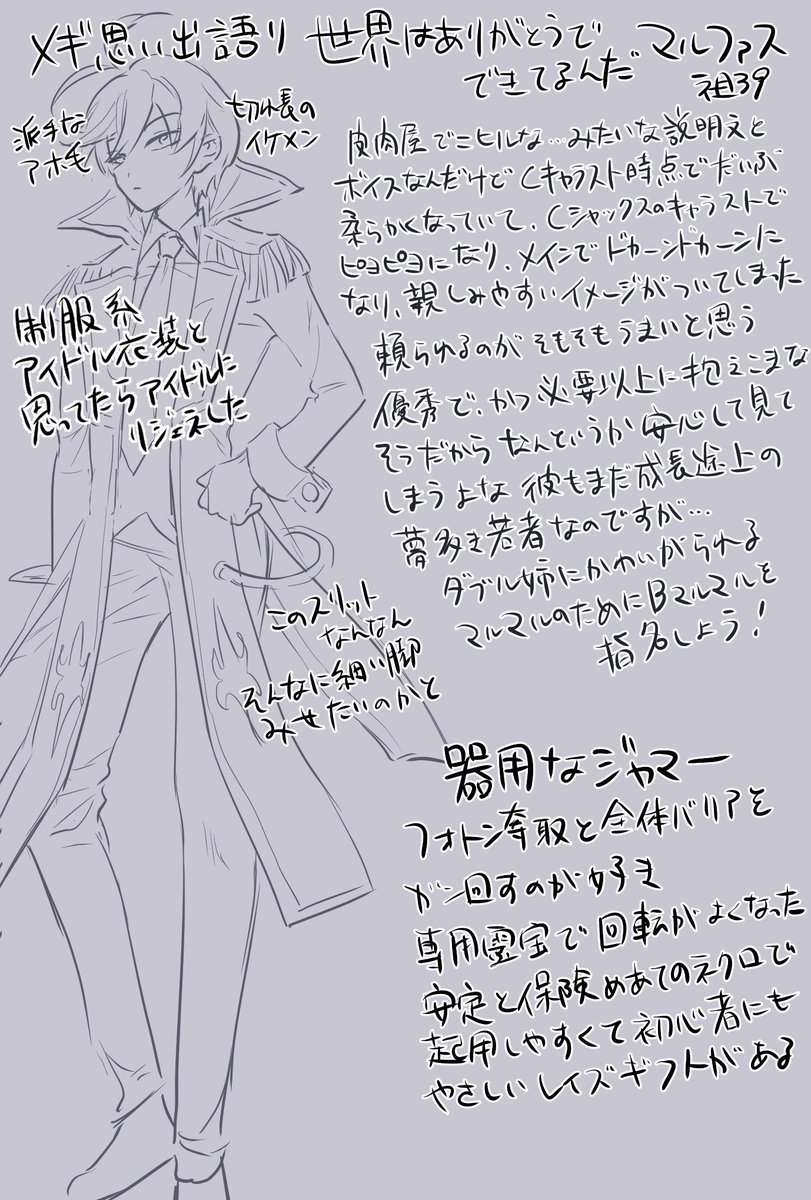 メギ思い出語り 世界はありがとうで
できてるんだ マルファス
祖39
派手な
アホ毛
切れ長の
イケメン
皮肉屋でニヒルな…みたいな説明文と
ボイスなんだけどCキャラスト時点でだいぶ
柔らかくなっていて、Cシャックスのキャラストで
ピヨピヨになり、メインでドカーンドカーンに
なり、親しみやすいイメージがついてしまった
頼られるのがそもそもうまいと思う
優秀で、かつ必要以上に抱えこまな
そうだからなんというか安心して見て
しまうよな 彼もまだ成長途上の
夢多き若者なのですが…
ダブル姉にかわいがられる
マルマルのためにBマルマルを
指名しよう!
制服系
アイドル衣装と
思ってたらアイドルに
リジェネした
このスリット
なんなん
そんなに細い脚
みせたいのかと
器用なジャマー
フォトン奪取と全体バリアを
ガン回すのが好き
専用霊宝で回転がよくなった
安定と保険めあてのネクロで
起用しやすくて初心者にも
やさしいレイズギフトがある